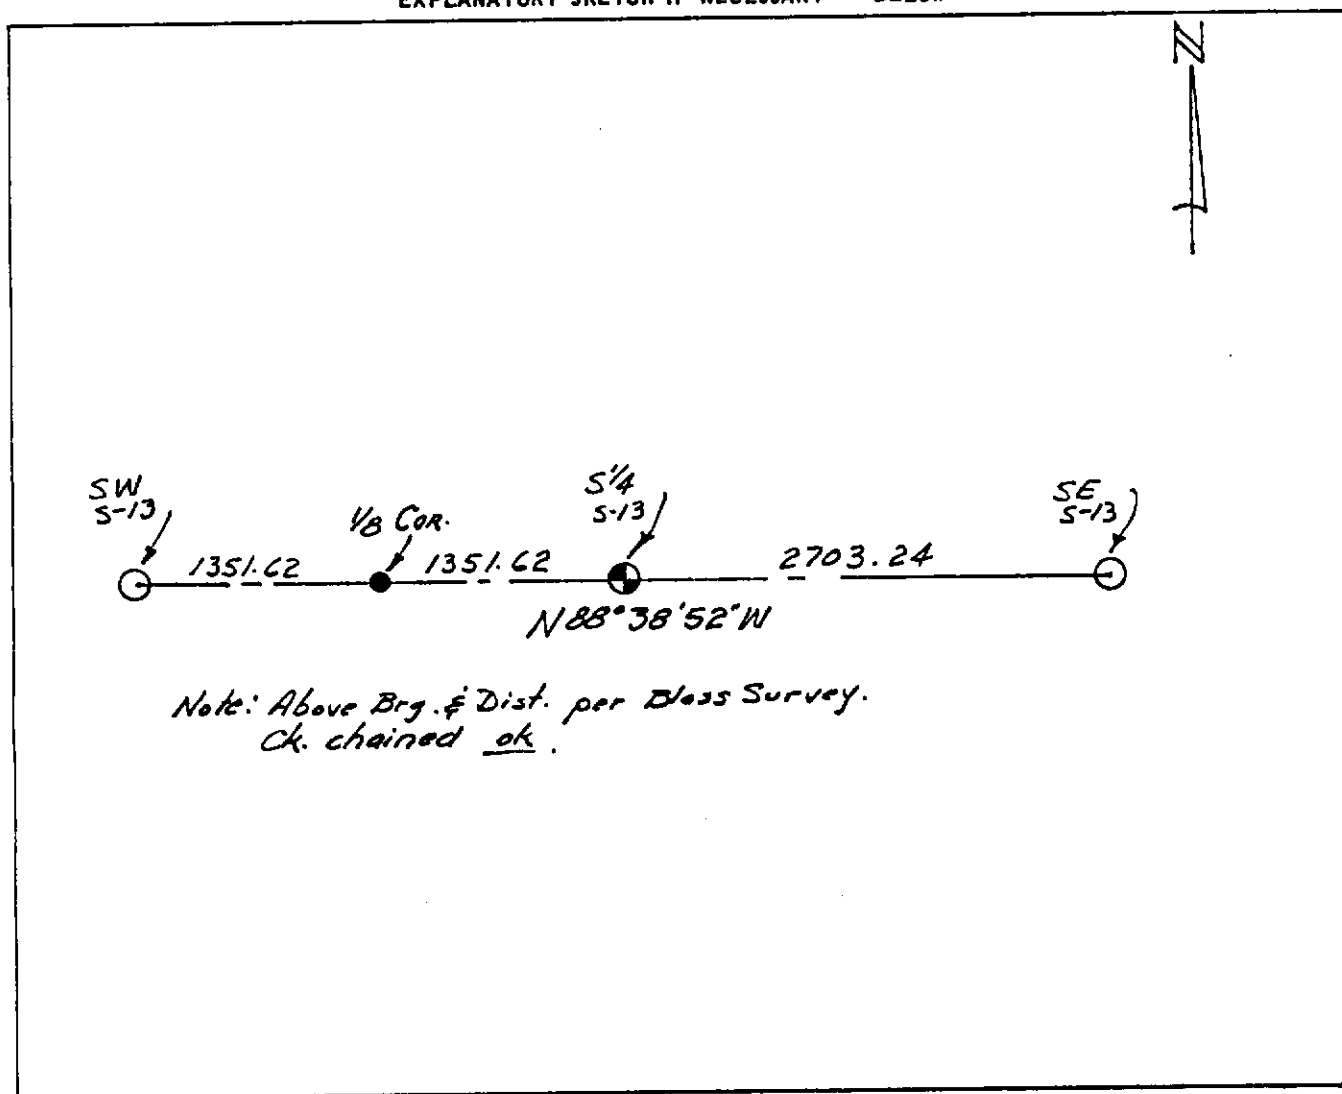 N
SW
S-13
1/8 COR.
S 1/4
S-13
SE
S-13
1351.62
1351.62
2703.24
N 88° 38' 52" W
Note: Above Brg. & Dist. per Bloss Survey.
Ck. chained ok.